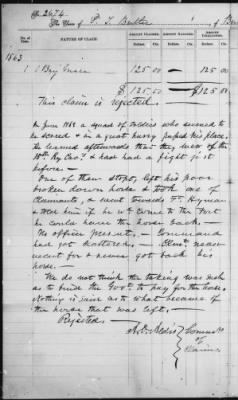 No. 2674.
The Claim of P. T. Butler of
No. of Items. NATURE OF CLAIM. AMOUNT CLAIMED. AMOUNT ALLOWED. AMOUNT DISALLOWED.
Dollars. Cts. Dollars. Cts. Dollars. Cts.
1863
1 1 Bay mare 125 00 — 125 00
$ 125.00 — $125.00
This claim is rejected.
In June 1863 a squad of soldiers who seemed to
be scared & in a great hurry passed his place.
He learned afterwards that they were of the
10th Ky Cavy & had had a fight just
before —
One of them stopt, left his poor
broken down horse & took one of
Claimants, & went towards
& told him if he wd come to the Fort
he could have the horse back.
The officer present — Command
had got scattered — Clmt never
went for & never got back his
horse.
We do not think the taking was such
as to bind the Govt. to pay for the horse.
Nothing is said as to what became of
the horse that was left. —
Rejected —
A. O. Aldis
Commrs
of
Claims